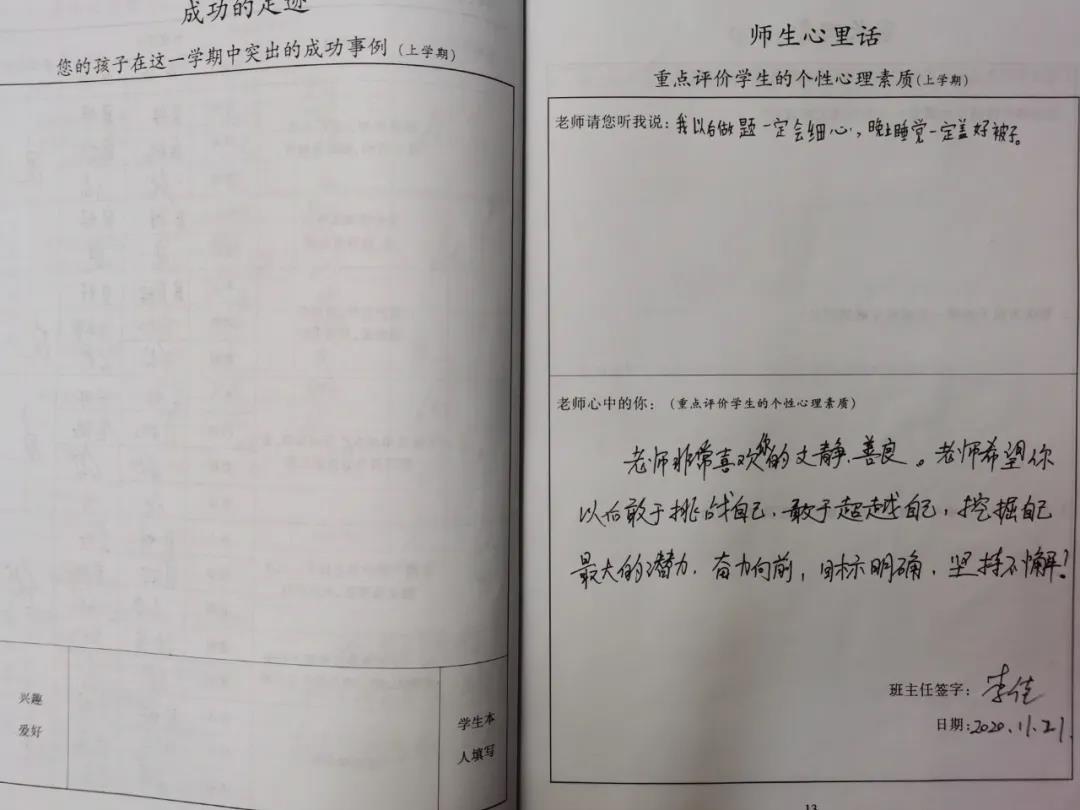 成功的足迹
您的孩子在这一学期中突出的成功事例（上学期）
兴趣
爱好
学生本
人填写
师生心里话
重点评价学生的个性心理素质(上学期)
老师请您听我说：我以后做题一定会细心，晚上睡觉一定盖好被子。
老师心中的你：（重点评价学生的个性心理素质）
老师非常喜欢你的文静、善良。老师希望你
以后敢于挑战自己，敢于超越自己，挖掘自己
最大的潜力，奋力向前，目标明确，坚持不懈！
班主任签字：李佳
日期:2020.11.21.
13